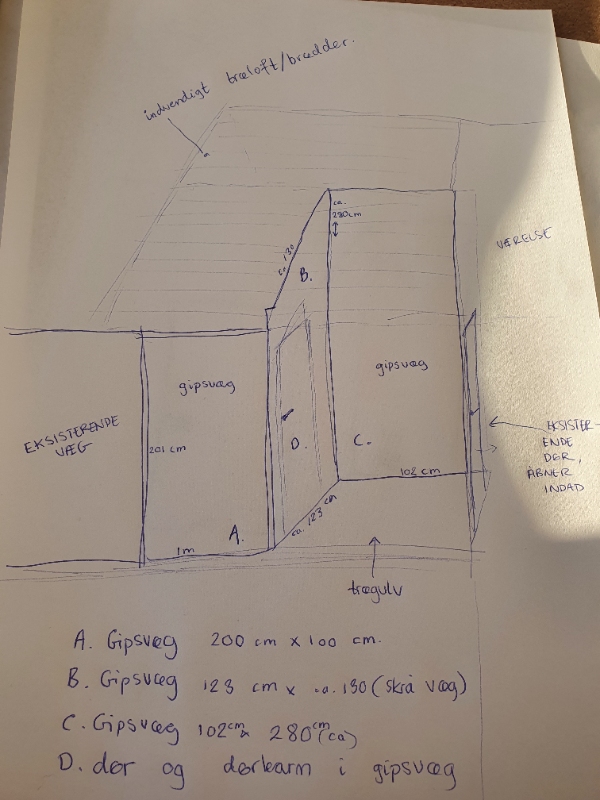 indvendigt træloft/brædder.
ca.
280cm
ca. 130
B.
VÆRELSE
gipsvæg
gipsvæg
EKSISTERENDE
VÆG
201 cm
D.
C.
EKSISTER-
ENDE
DØR,
ÅBNER
INDAD
102 cm
ca. 123 cm
A.
1m
trægulv
A. Gipsvæg 200 cm x 100 cm.
B. Gipsvæg 123 cm x ca. 130 (skrå væg)
C. Gipsvæg 102cm x 280cm (ca)
D. dør og dørkarm i gipsvæg